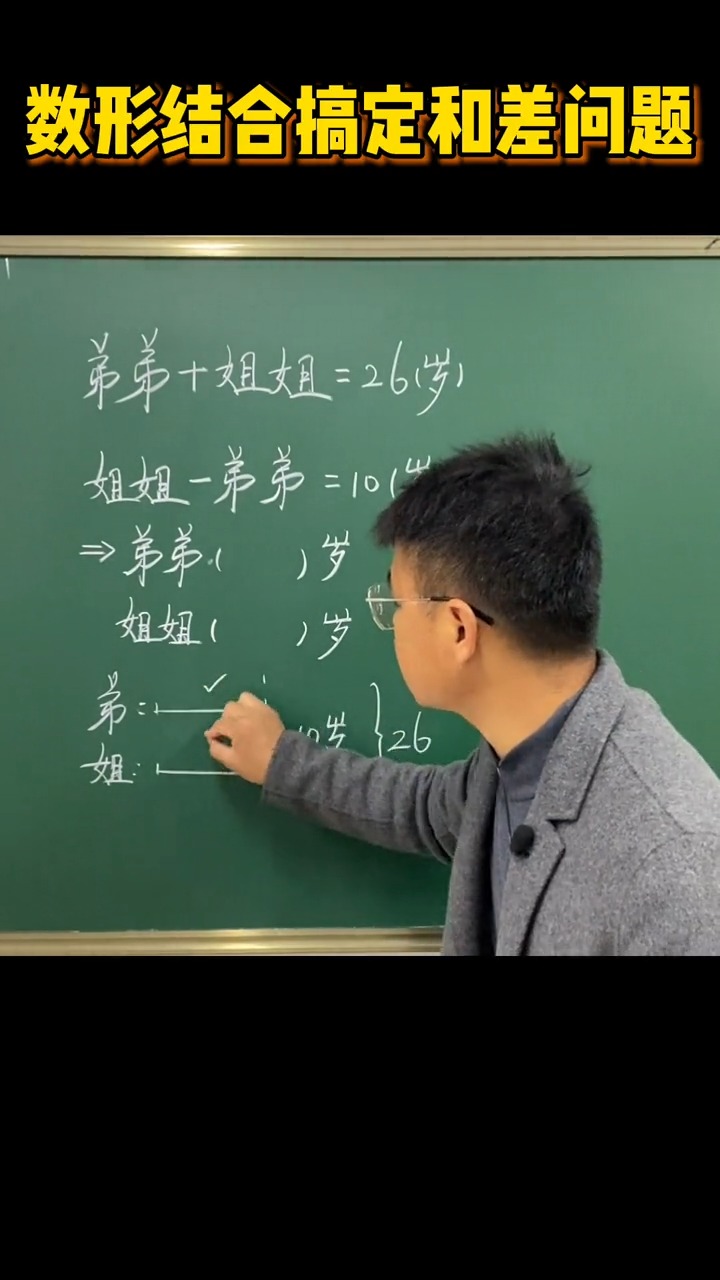 数形结合搞定和差问题
弟弟+姐姐=26(岁)
姐姐-弟弟=10(岁
⇒弟弟(    )岁
姐姐(    )岁
弟: ✓
姐: 10岁 }26